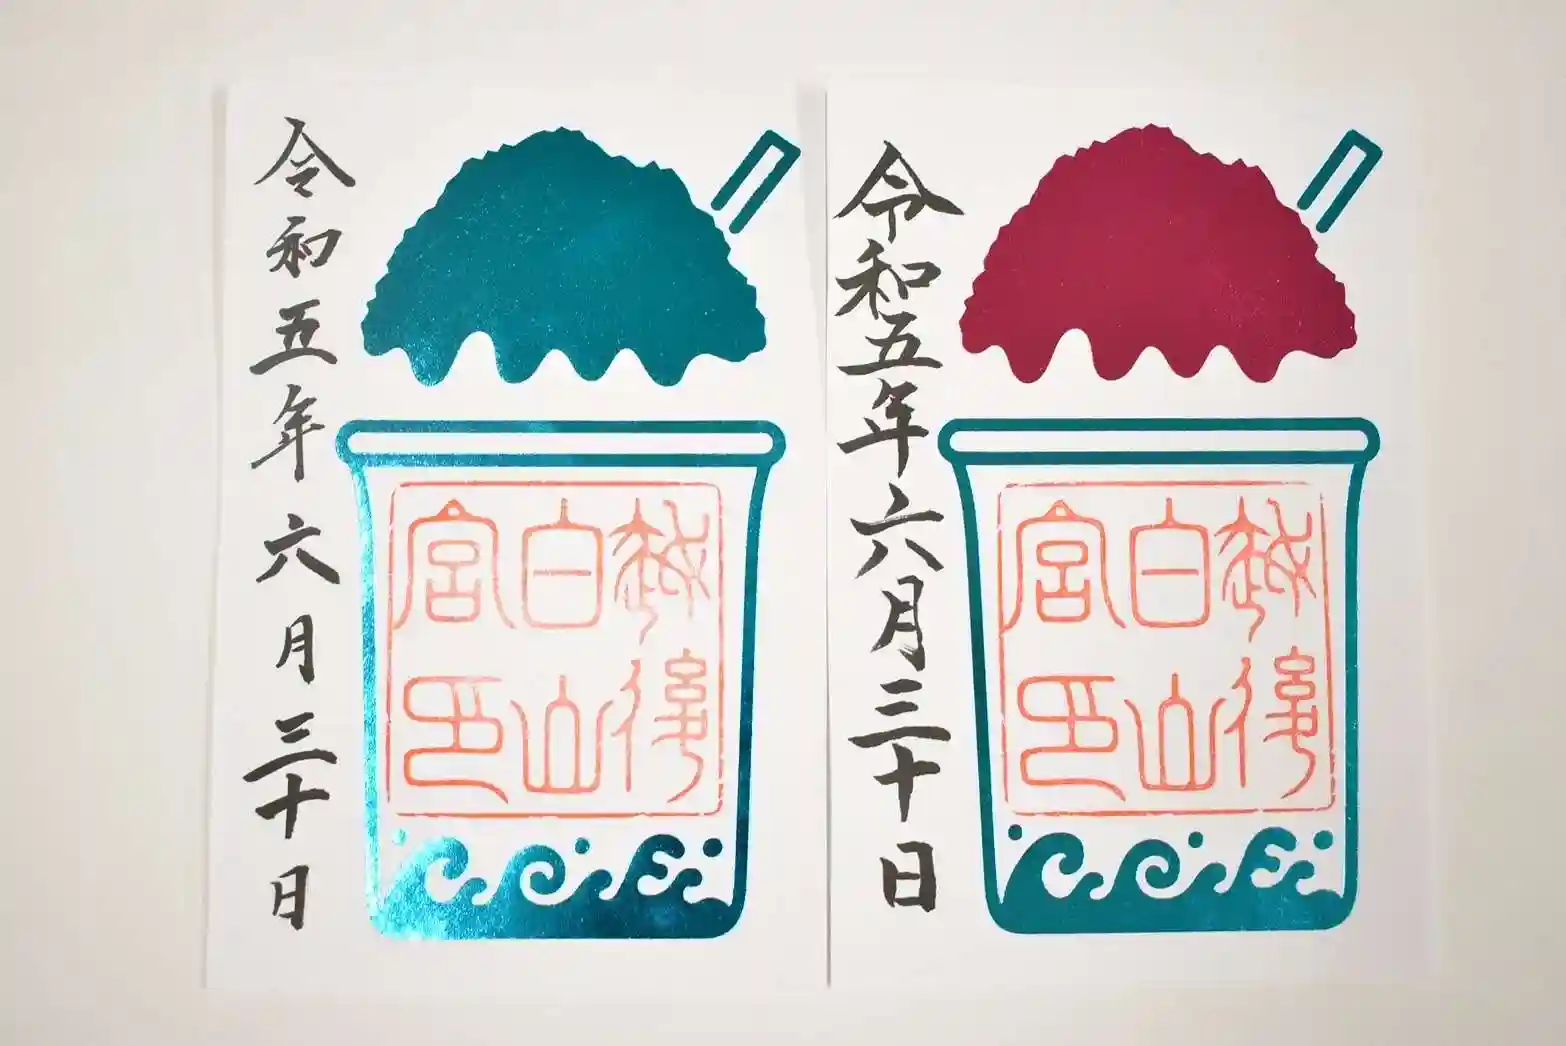 越後
白山
宮印
令和五年六月三十日
越後
白山
宮印
令和五年六月三十日